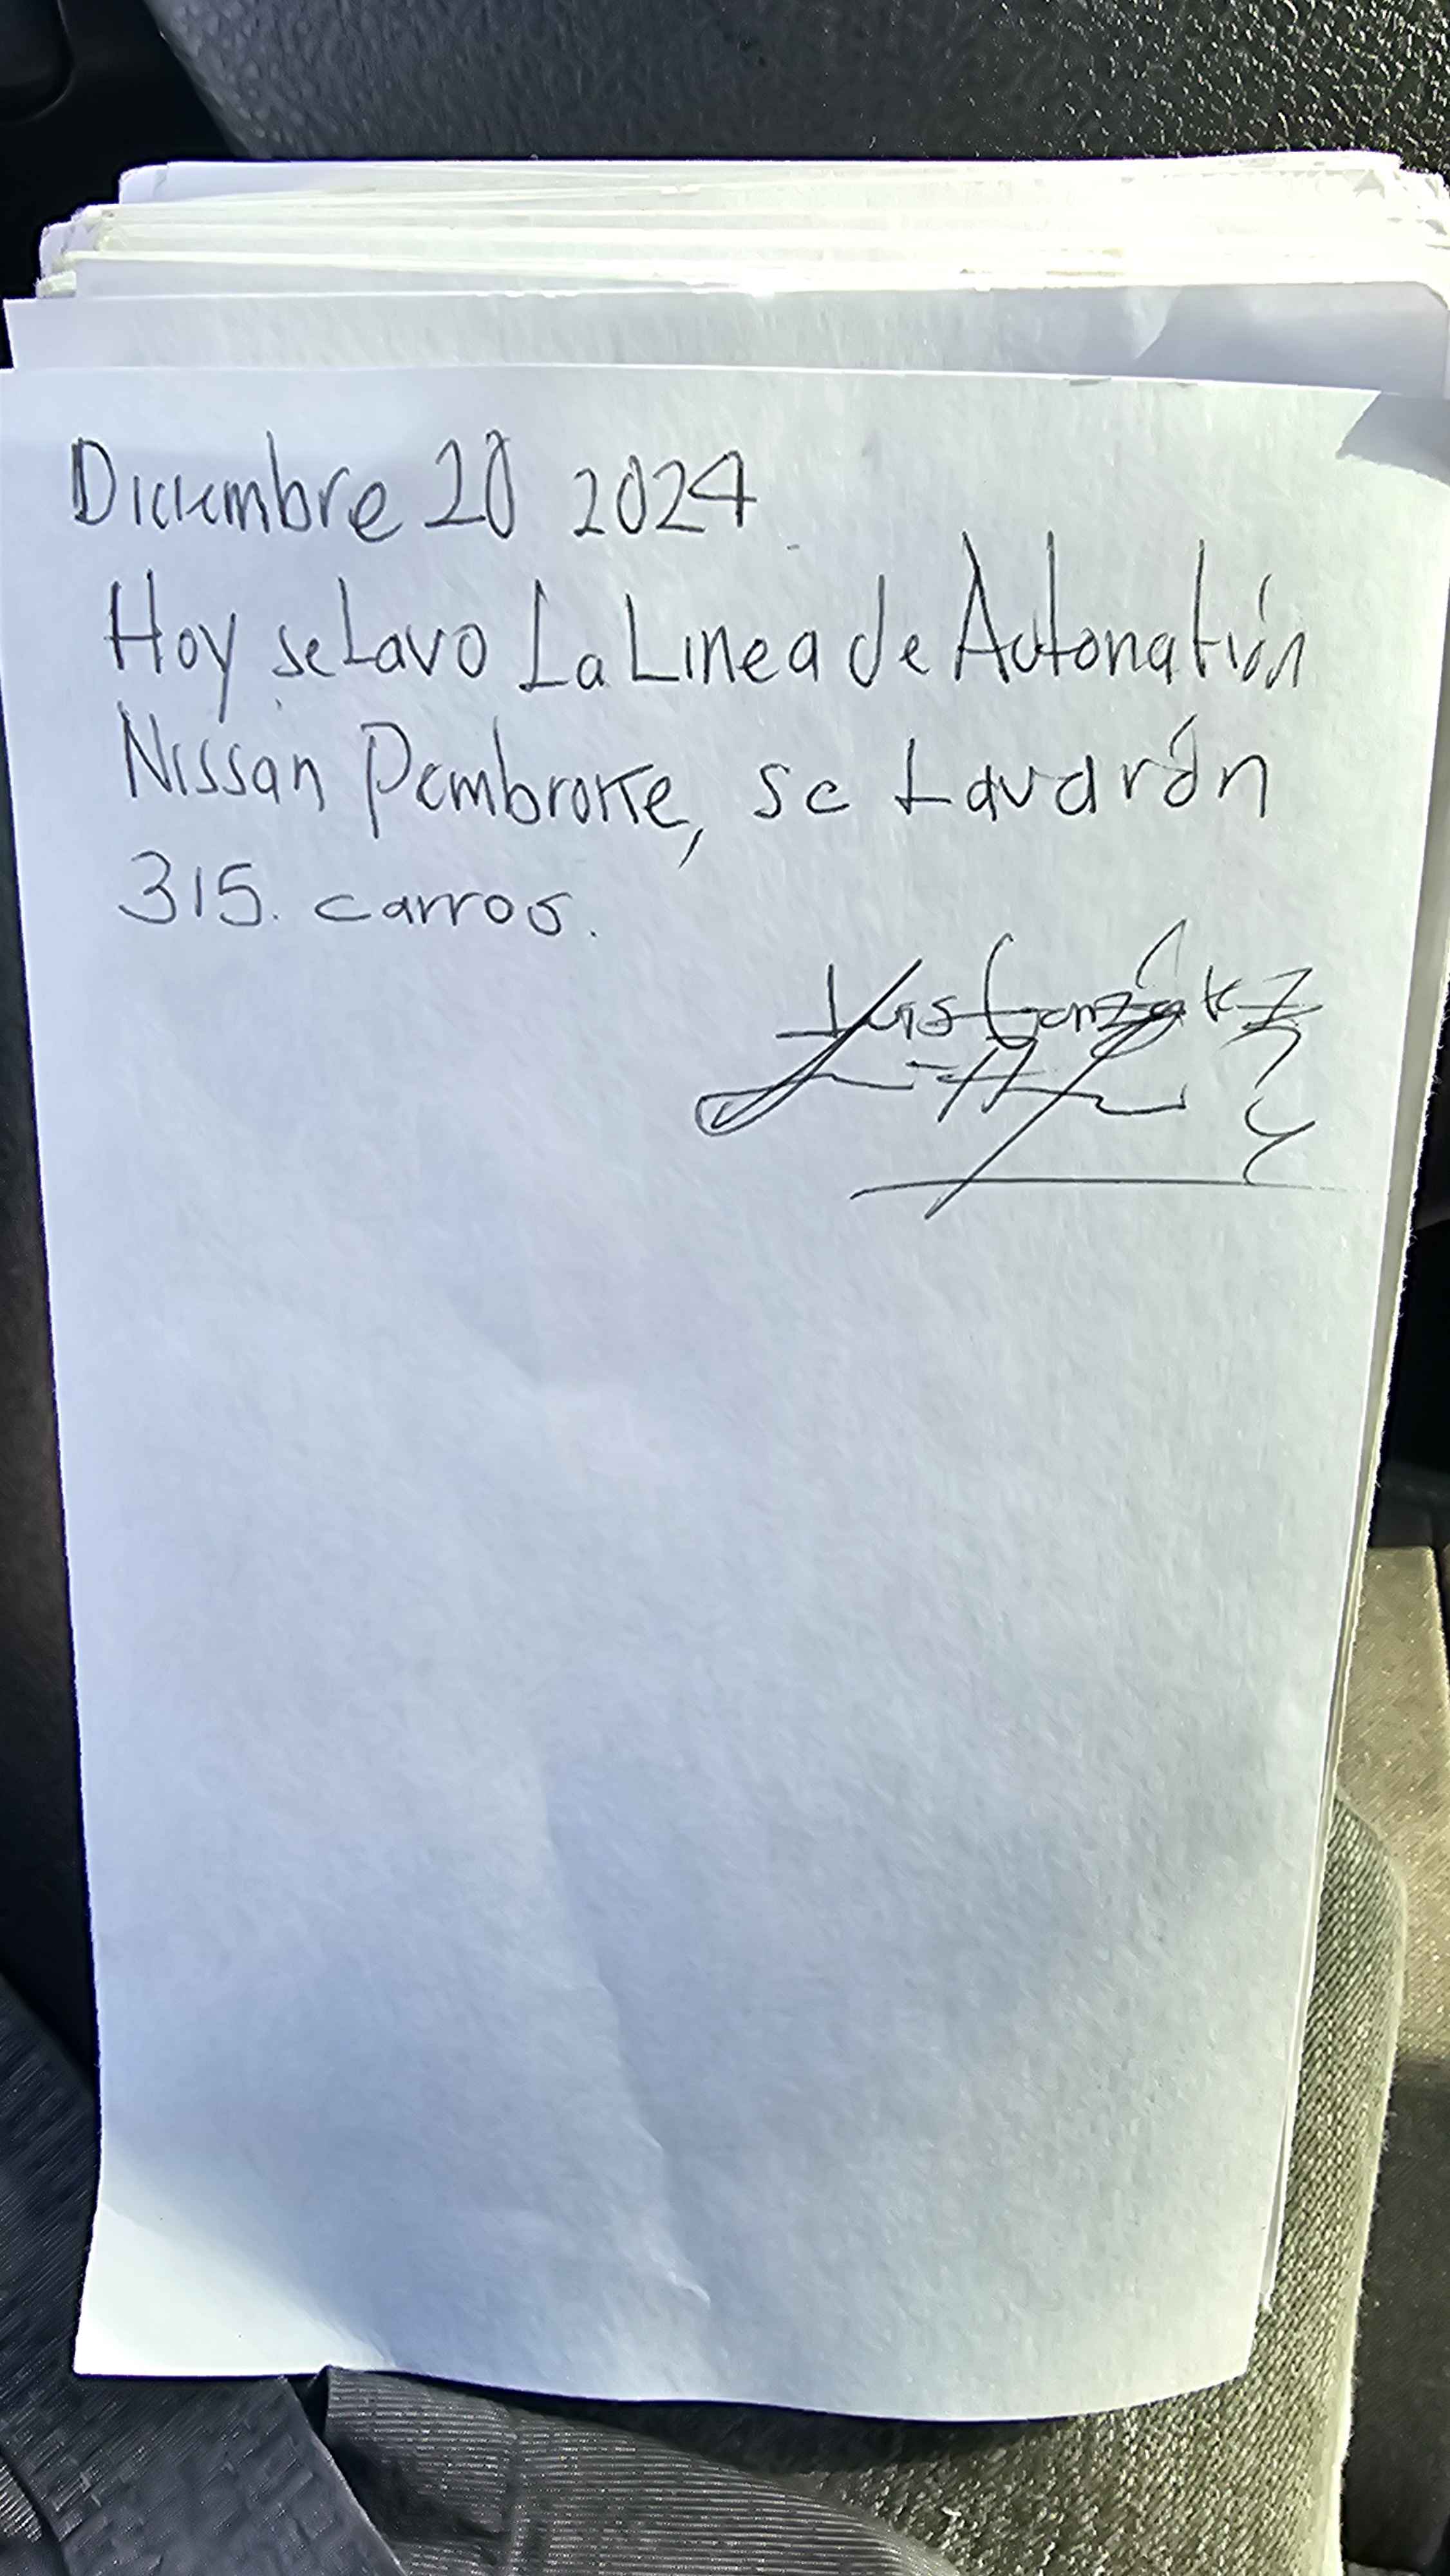 Diciembre 20 2024
Hoy se Lavo La Linea de Autonatión
Nissan Pembroke, se Lavarón
315. carros.
Luis González